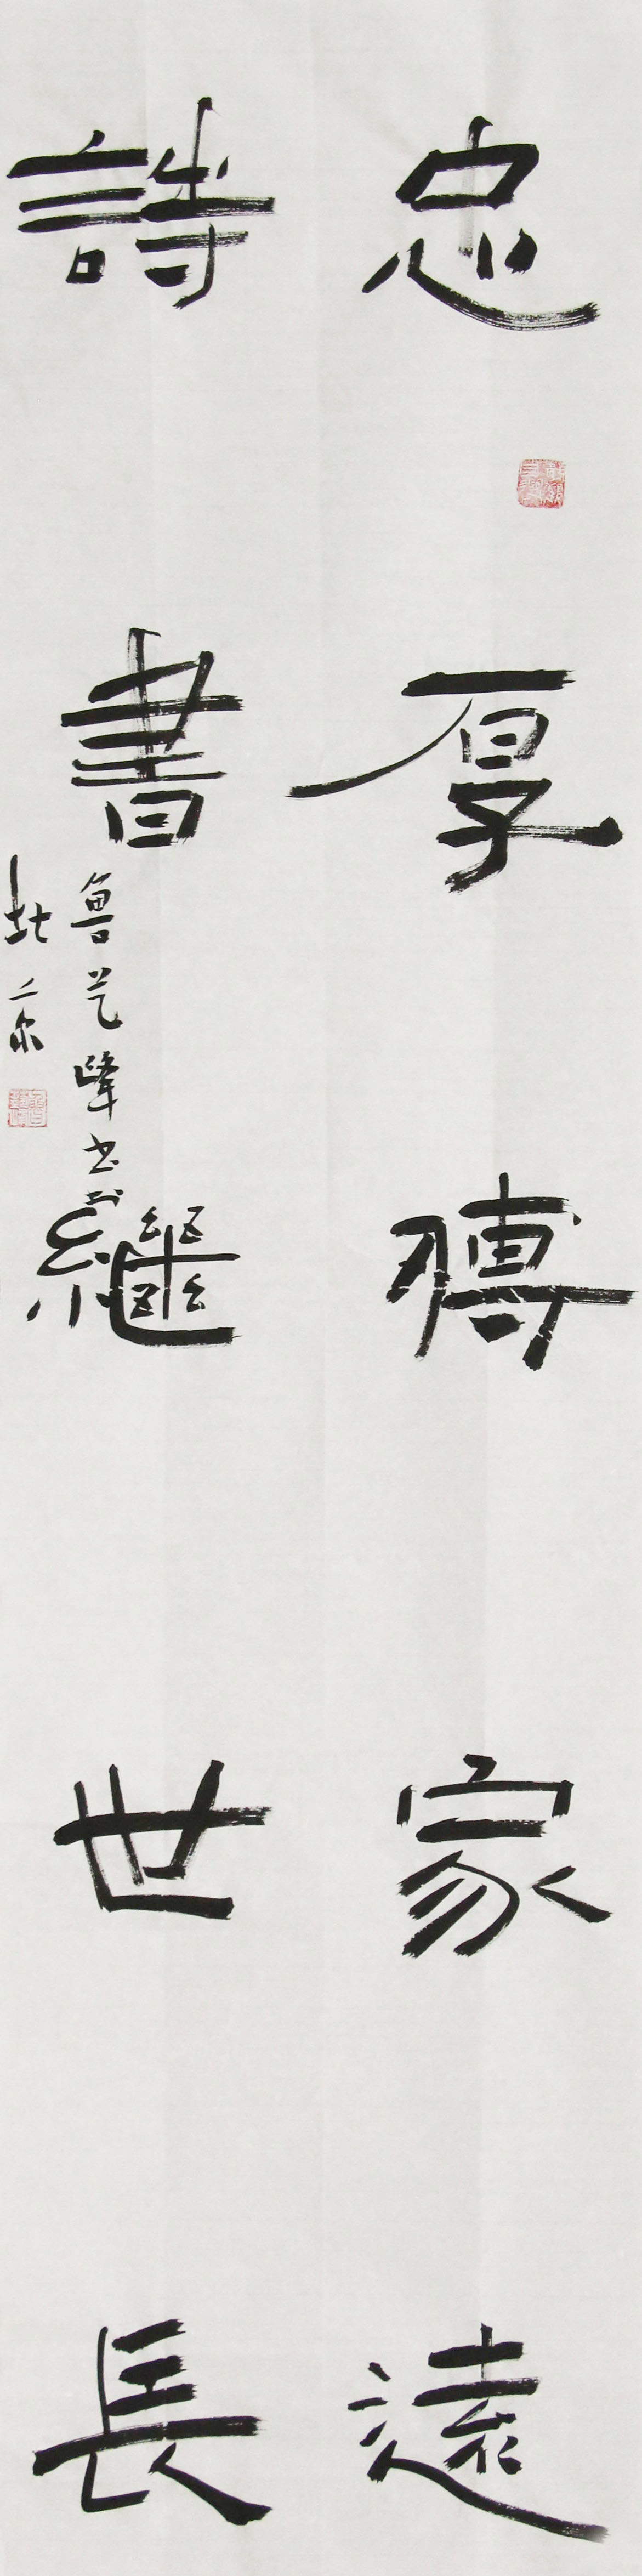 忠厚傳家遠
詩書繼世長
魯藝峰書於
北京